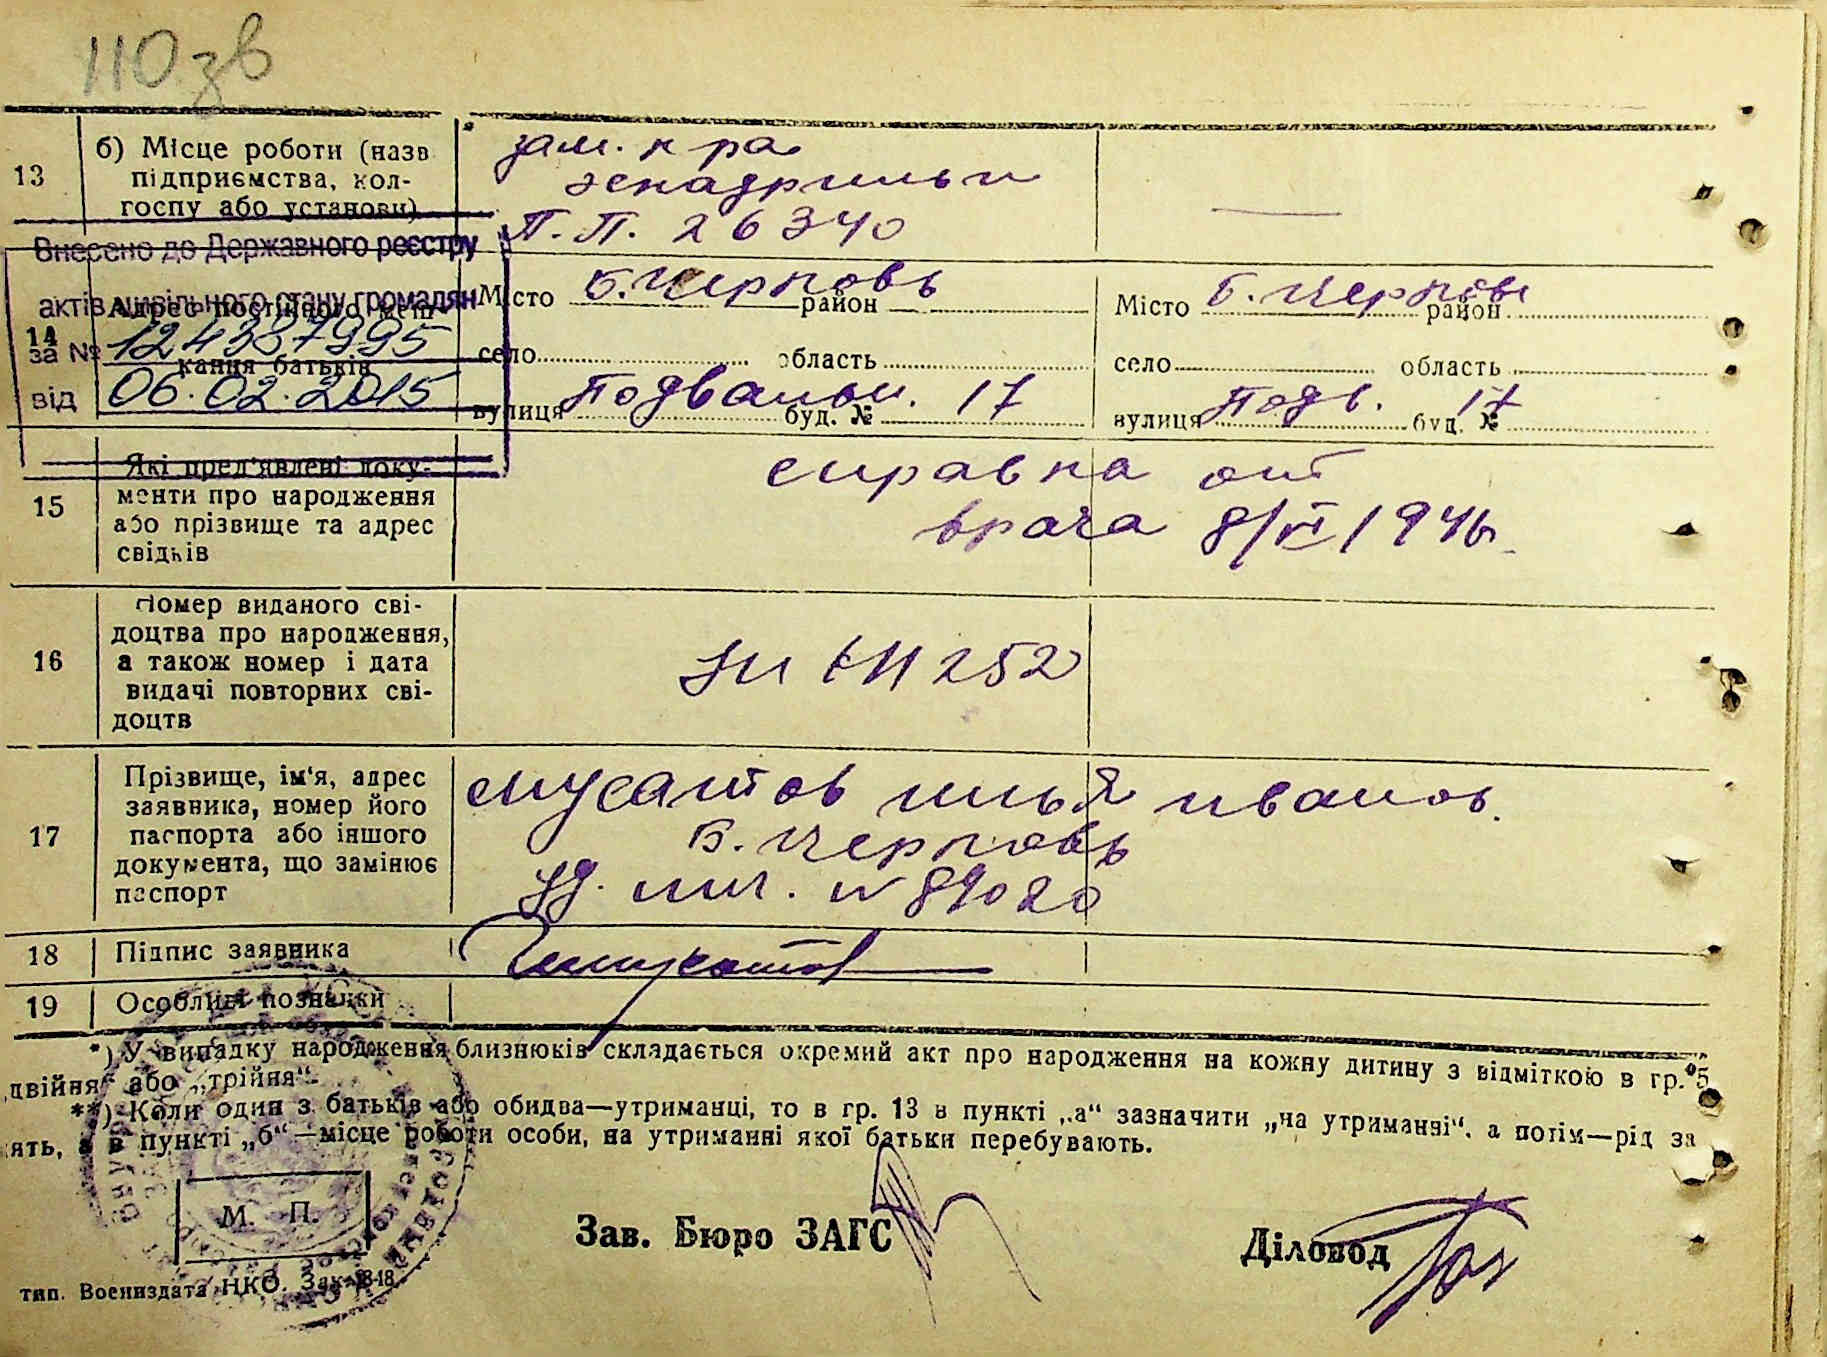 110 зв
13
б) Місце роботи (назв
підприємства, кол-
госпу або установи)
зам. к ра
эскадрильи
П.П. 26340
Внесено до Державного реєстру
актів цивільного стану громадян
за № 12438 7995
від 06.02.2015
14
Адрес постійного меш-
кання батьків
Місто Б. Черновь район
село область
вулиця Подвальн. буд. № 17
Місто Б. Черновь район
село область
вулиця Подв. буд. № 17
15
Які пред'явлені доку-
менти про народження
або прізвище та адрес
свідків
справка от
врача 8/XI 1946
16
Номер виданого сві-
доцтва про народження,
а також номер і дата
видачі повторних сві-
доцтв
252
17
Прізвище, ім'я, адрес
заявника, номер його
паспорта або іншого
документа, що замінює
паспорт
Мусатов Илья Иванов.
Б. Черновь
уд. лич. № 89020
18
Підпис заявника
19
Особливі познаки
*) У випадку народження близнюків складається окремий акт про народження на кожну дитину з відміткою в гр. 5
„двійня“ або „трійня“.
**) Коли один з батьків або обидва—утриманці, то в гр. 13 в пункті „а“ зазначити „на утриманні“, а потім—рід за
нять, а в пункті „б“—місце роботи особи, на утриманні якої батьки перебувають.
М. П.
Зав. Бюро ЗАГС
Діловод
тип. Воениздата НКО. Зак.